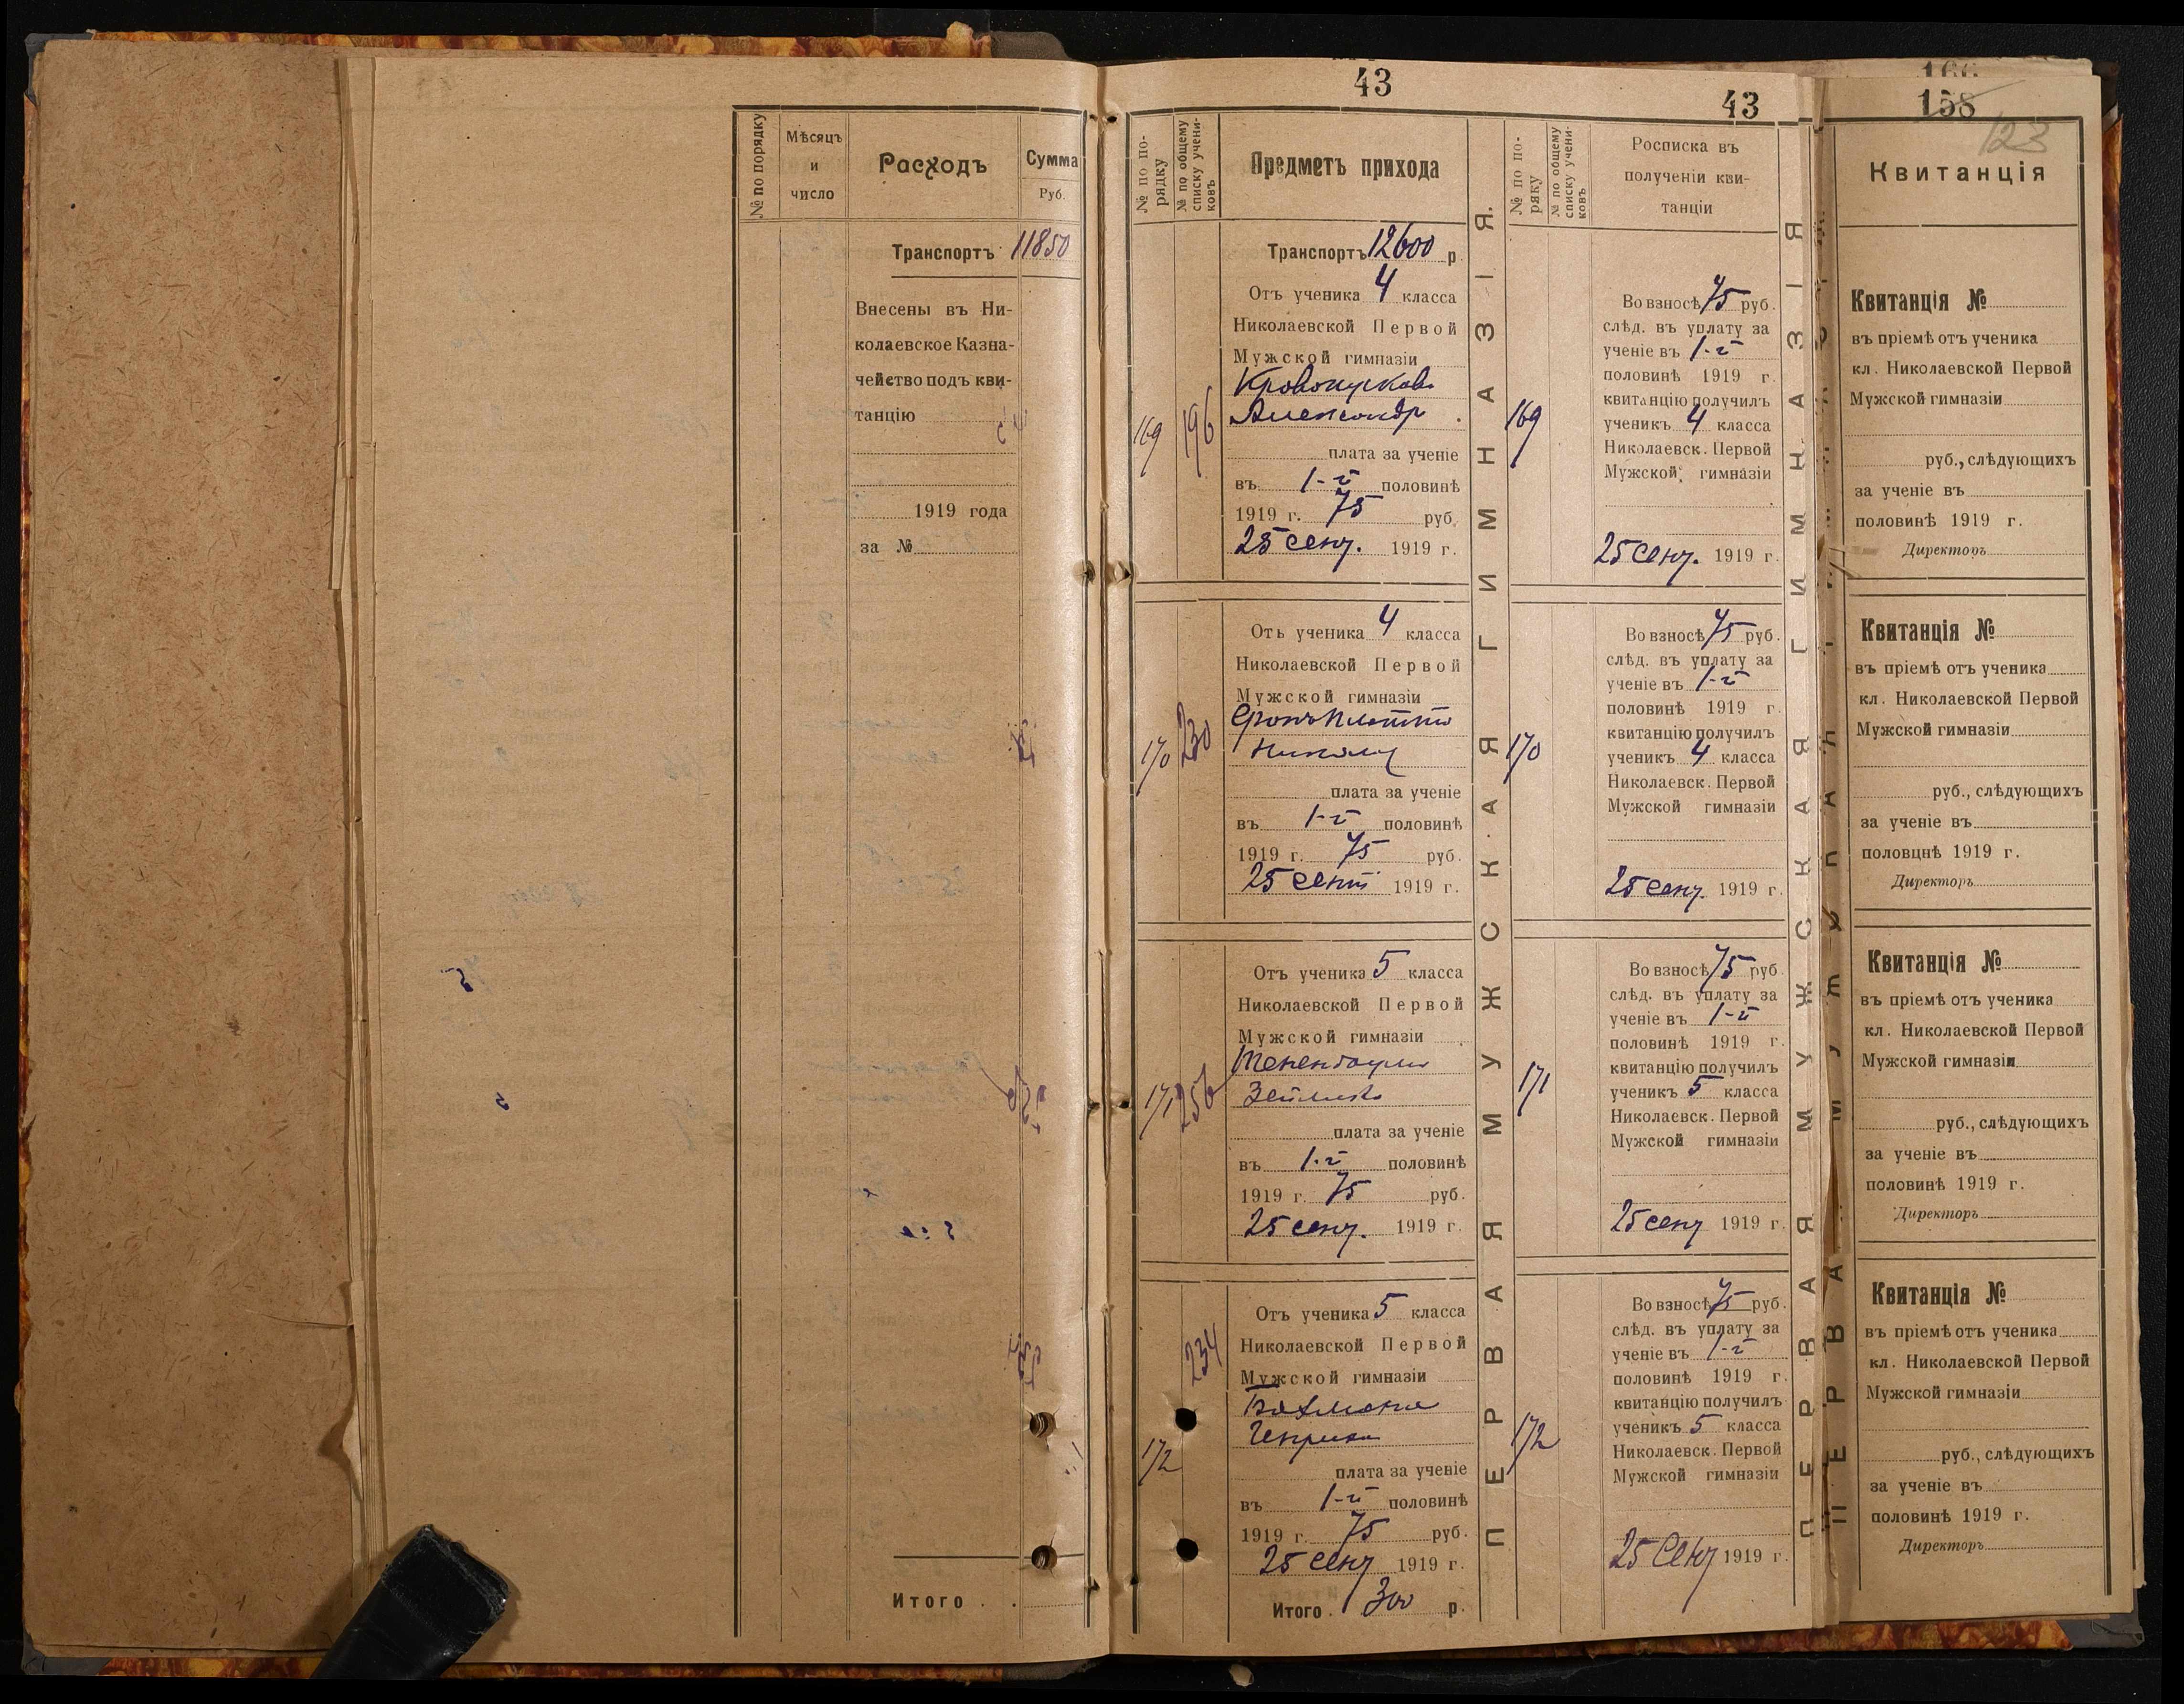 № по порядку
Мѣсяцъ
и
число
Расходъ
Сумма
Руб.
Транспортъ 11850
Внесены въ Ни-
колаевское Казна-
чейство подъ кви-
танцію
1919 года
за №
Итого . .
43
№ по по-
рядку
№ по общему
списку учени-
ковъ
Предметъ прихода
Транспортъ 12600 р.
169
196
Отъ ученика 4 класса
Николаевской Первой
Мужской гимназіи
Александр
плата за ученіе
въ 1-й половинѣ
1919 г. 75 руб.
25 сент. 1919 г.
170
230
Отъ ученика 4 класса
Николаевской Первой
Мужской гимназіи
плата за ученіе
въ 1-й половинѣ
1919 г. 75 руб.
25 сент 1919 г.
171
256
Отъ ученика 5 класса
Николаевской Первой
Мужской гимназіи
плата за ученіе
въ 1-й половинѣ
1919 г. 75 руб.
25 сент. 1919 г.
172
234
Отъ ученика 5 класса
Николаевской Первой
Мужской гимназіи
плата за ученіе
въ 1-й половинѣ
1919 г. 75 руб.
25 сент 1919 г.
Итого . 300 р.
ПЕРВАЯ МУЖСКАЯ ГИМНАЗІЯ.
43
№ по по-
ряку
№ по общему
списку учени-
ковъ
Росписка въ
полученіи кви-
танціи
169
Во взносѣ 75 руб.
слѣд. въ уплату за
ученіе въ 1-й
половинѣ 1919 г.
квитанцію получилъ
ученикъ 4 класса
Николаевск. Первой
Мужской гимназіи
25 сент. 1919 г.
170
Во взносѣ 75 руб.
слѣд. въ уплату за
ученіе въ 1-й
половинѣ 1919 г.
квитанцію получилъ
ученикъ 4 класса
Николаевск. Первой
Мужской гимназіи
25 сент. 1919 г.
171
Во взносѣ 75 руб.
слѣд. въ уплату за
ученіе въ 1-й
половинѣ 1919 г.
квитанцію получилъ
ученикъ 5 класса
Николаевск. Первой
Мужской гимназіи
25 сент 1919 г.
172
Во взносѣ 75 руб.
слѣд. въ уплату за
ученіе въ 1-й
половинѣ 1919 г.
квитанцію получилъ
ученикъ 5 класса
Николаевск. Первой
Мужской гимназіи
25 Сент 1919 г.
ПЕРВАЯ МУЖСКАЯ ГИМНАЗІЯ
166
158
123
Квитанція
Квитанція №
въ пріемѣ отъ ученика
кл. Николаевской Первой
Мужской гимназіи
руб., слѣдующихъ
за ученіе въ
половинѣ 1919 г.
Директоръ
Квитанція №
въ пріемѣ отъ ученика
кл. Николаевской Первой
Мужской гимназіи
руб., слѣдующихъ
за ученіе въ
половцнѣ 1919 г.
Директоръ
Квитанція №
въ пріемѣ отъ ученика
кл. Николаевской Первой
Мужской гимназіи
руб., слѣдующихъ
за ученіе въ
половинѣ 1919 г.
Директоръ
Квитанція №
въ пріемѣ отъ ученика
кл. Николаевской Первой
Мужской гимназіи
руб., слѣдующихъ
за ученіе въ
половинѣ 1919 г.
Директоръ